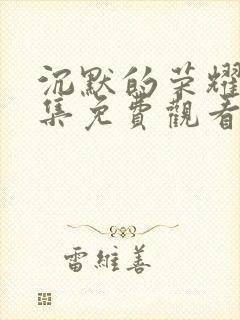 沉默的荣耀
集免費觀看
雷維善